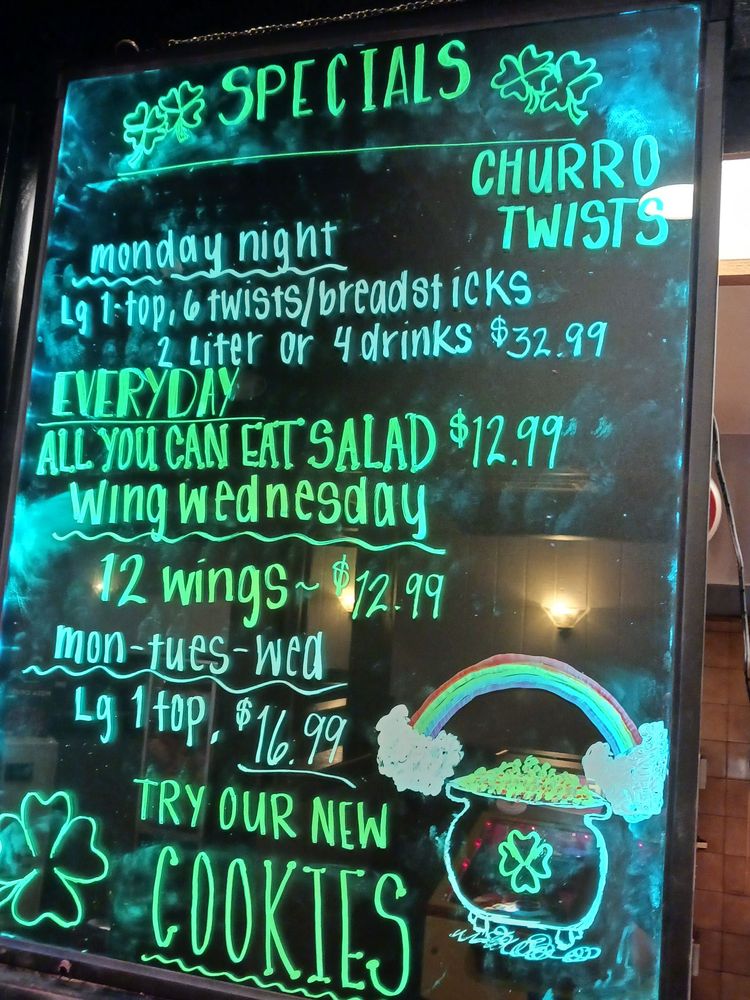 SPECIALS
CHURRO
TWISTS
monday night
Lg 1-top, 6 twists/breadsticks
2 Liter or 4 drinks $32.99
EVERYDAY
ALL YOU CAN EAT SALAD $12.99
Wing wednesday
12 wings ~ $12.99
mon-tues-wed
Lg 1 top, $16.99
TRY OUR NEW
COOKIES